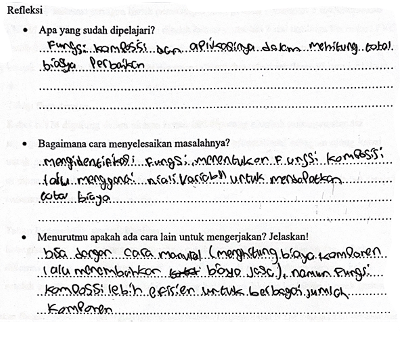 Refleksi
• Apa yang sudah dipelajari?
Fungsi komposisi dan aplikasinya dalam menghitung total
biaya Perbaikan
• Bagaimana cara menyelesaikan masalahnya?
mengidentifikasi Fungsi, menentukan Fungsi komposisi
lalu mengganti nilai variabel untuk mendapatkan
total biaya
• Menurutmu apakah ada cara lain untuk mengerjakan? Jelaskan!
bisa dengan cara manual (menghitung biaya komponen
lalu menambahkan biaya jasa), namun Fungsi
komposisi lebih efisien untuk berbagai jumlah
komponen